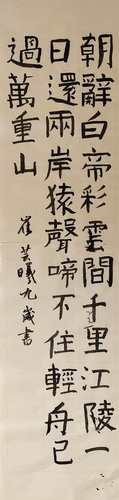 朝辭白帝彩雲間千里江陵一
日還兩岸猿聲啼不住輕舟已
過萬重山
崔芸曦九歲書